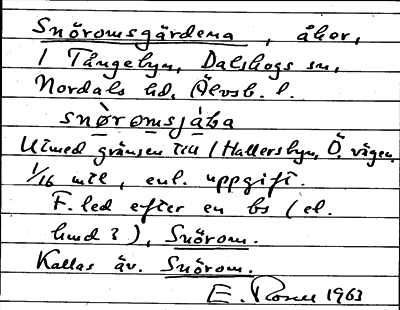 Snöromsgärdena, åker,
/ Tångebyn, Dalskogs sn,
Nordals hd, Älvsb. l.
snø̀romsjàɽa
Utmed gränsen till / Hallersbyn, Ö. vägen
1/16 mil, enl. uppgift.
F. led efter en bs (el.
hmd?), Snörom.
Kallas äv. Snörom.
E. 1963